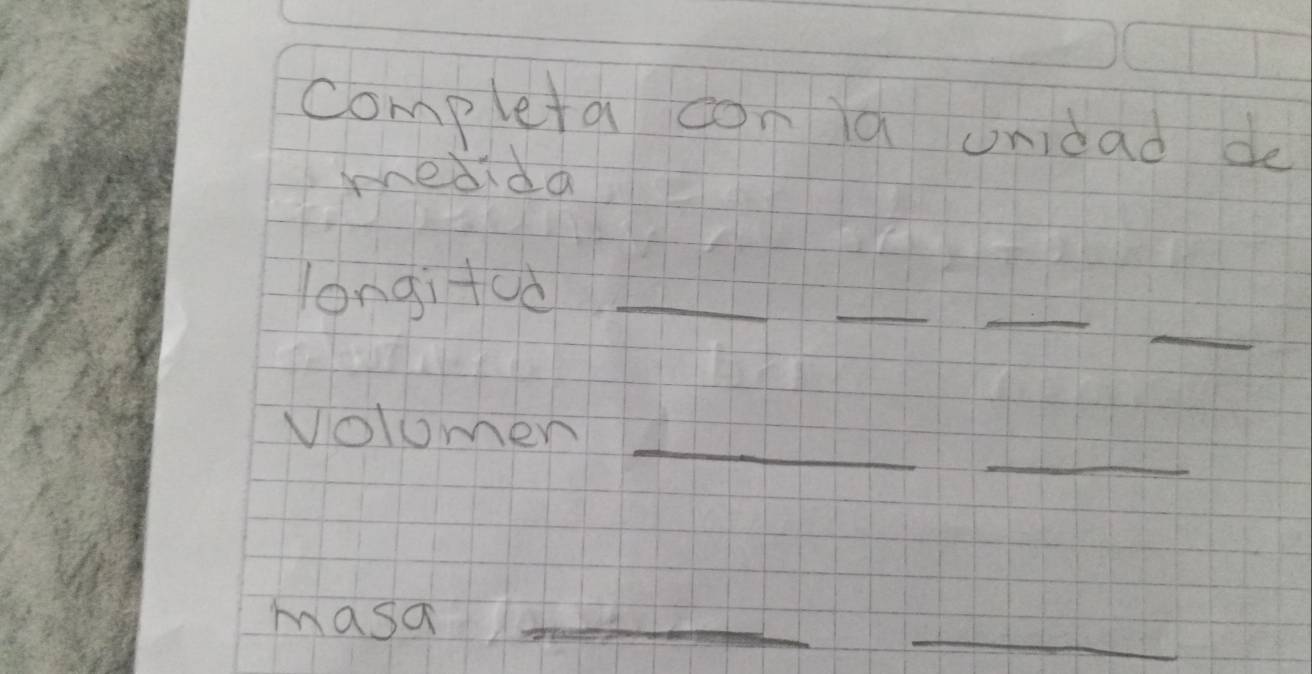 Completa con la unidad de
medida
longitud ____ ___ ___ ___
volumen ____ ____
masa ____ ____